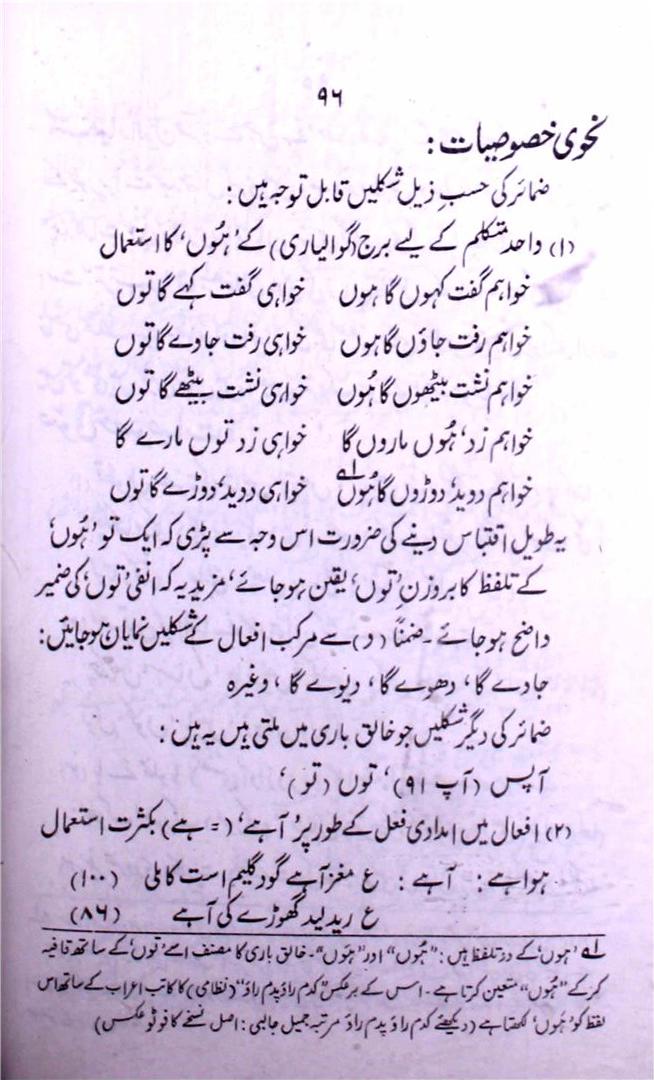 ۹۶
نحوی خصوصیات :
ضمائر کی حسبِ ذیل شکلیں قابل توجہ ہیں :
(۱) واحد متکلم کے لیے برج (گوالیاری) کے ’ہُوں‘ کا استعمال
خواہم گفت کہوں گا ہوں خواہی گفت کہے گا توں
خواہم رفت جاؤں گا ہوں خواہی رفت جاوے گا توں
خواہم نشت بیٹھوں گا ہُوں خواہی نشت بیٹھے گا توں
خواہم زد، ہُوں ماروں گا خواہی زد توں مارے گا
خواہم دوید، دوڑوں گا ہُوں ؎۱ خواہی دوید، دوڑے گا توں
یہ طویل اقتباس دینے کی ضرورت اس وجہ سے پڑی کہ ایک تو ’ہُوں‘
کے تلفظ کا بروزنِ ’توں‘ یقین ہو جائے، مزید یہ کہ انفی ’توں‘ کی ضمیر
واضح ہو جائے ۔ ضمناً (و) سے مرکب افعال کے شکلیں نمایاں ہو جائیں :
جاوے گا، دھوے گا، دیوے گا، وغیرہ
ضمائر کی دیگر شکلیں جو خالق باری میں ملتی ہیں یہ ہیں :
آپس (آپ ۹۱)، توں (تو)،
(۲) افعال میں امدادی فعل کے طور پر ’آہے‘ (= ہے) بکثرت استعمال
ہوا ہے : آہے : ع مغز آہے گود گلیم است کاملی (۱۰۰)
ع رید لید گھوڑے کی آہے (۸۶)
؎۱ ’ہوں‘ کے دو تلفظ ہیں : "ہُوں" اور "ہَوں" ۔ خالق باری کا مصنف اسے ’توں‘ کے ساتھ قافیہ
کر کے "ہُوں" متعین کرتا ہے ۔ اس کے برعکس "کدم راؤ پدم راؤ" (نظامی) کا کاتب اعراب کے ساتھ اس
لفظ کو ’ہَوں‘ لکھتا ہے (دیکھئے کدم راؤ پدم راؤ مرتبہ جمیل جالبی : اصل نسخے کا فوٹو عکس)